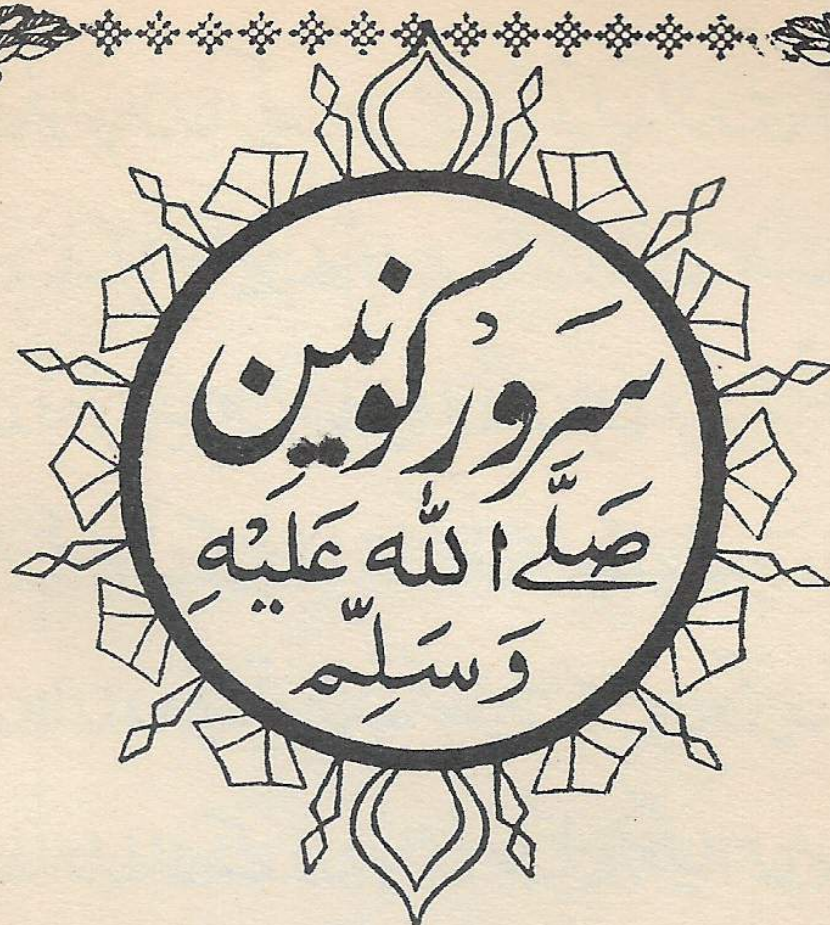 سَرورْ کونین
صَلَّے اللّٰه عَلَيْهِ
وَسَلِّم